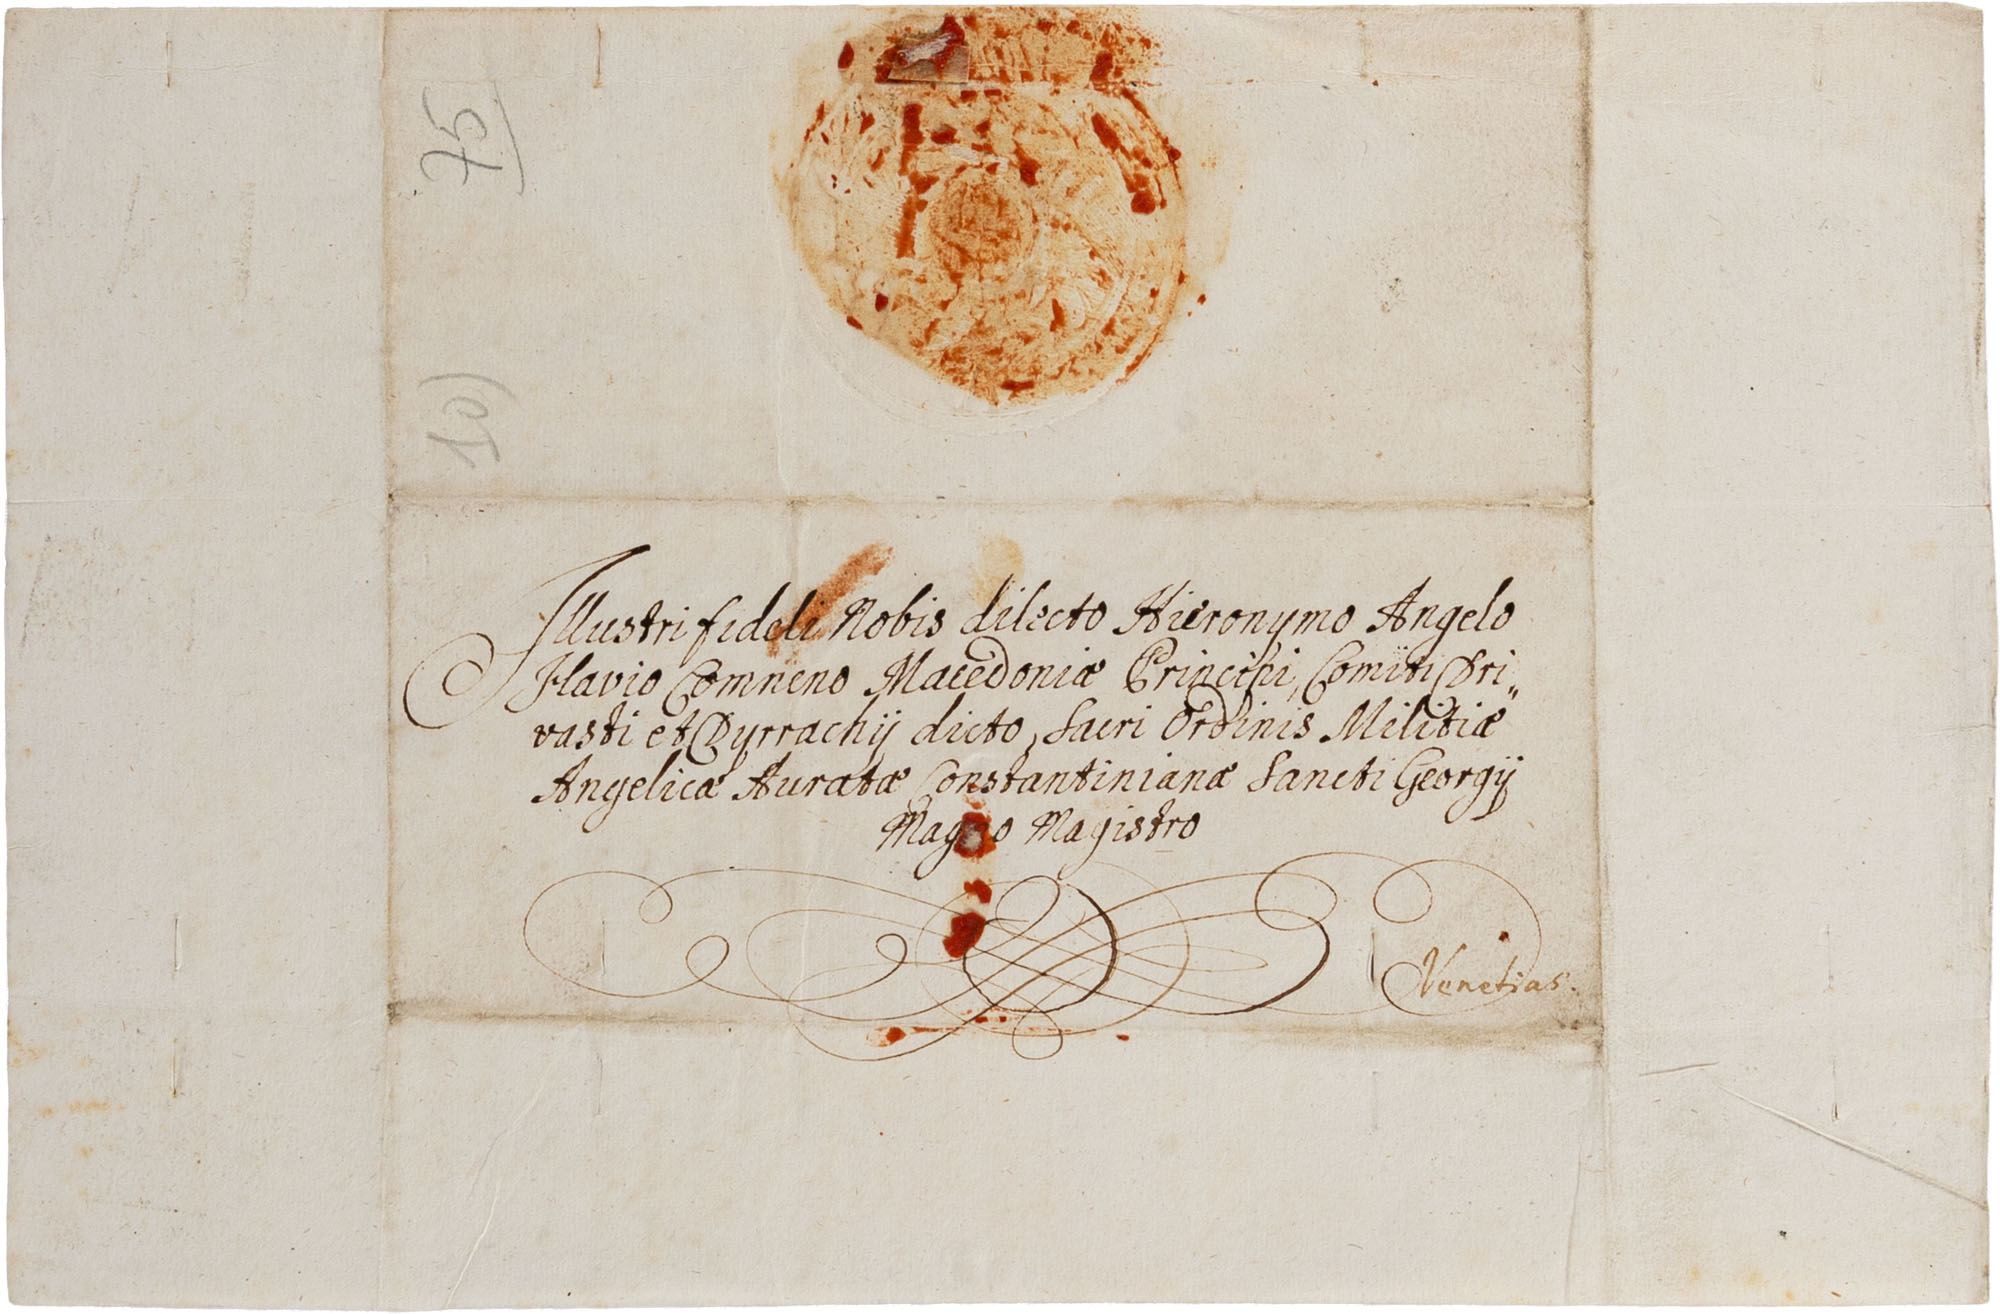 75
10)
Illustri fideli Nobis dilecto Hieronymo Angelo
Flavio Comneno Macedoniæ Principi, Comiti Dri„
vasti et Dyrrachij dicto, Sacri Ordinis Militiæ
Angelicæ Auratæ Constantinianæ Sancti Georgij
Magno Magistro
Venetias.